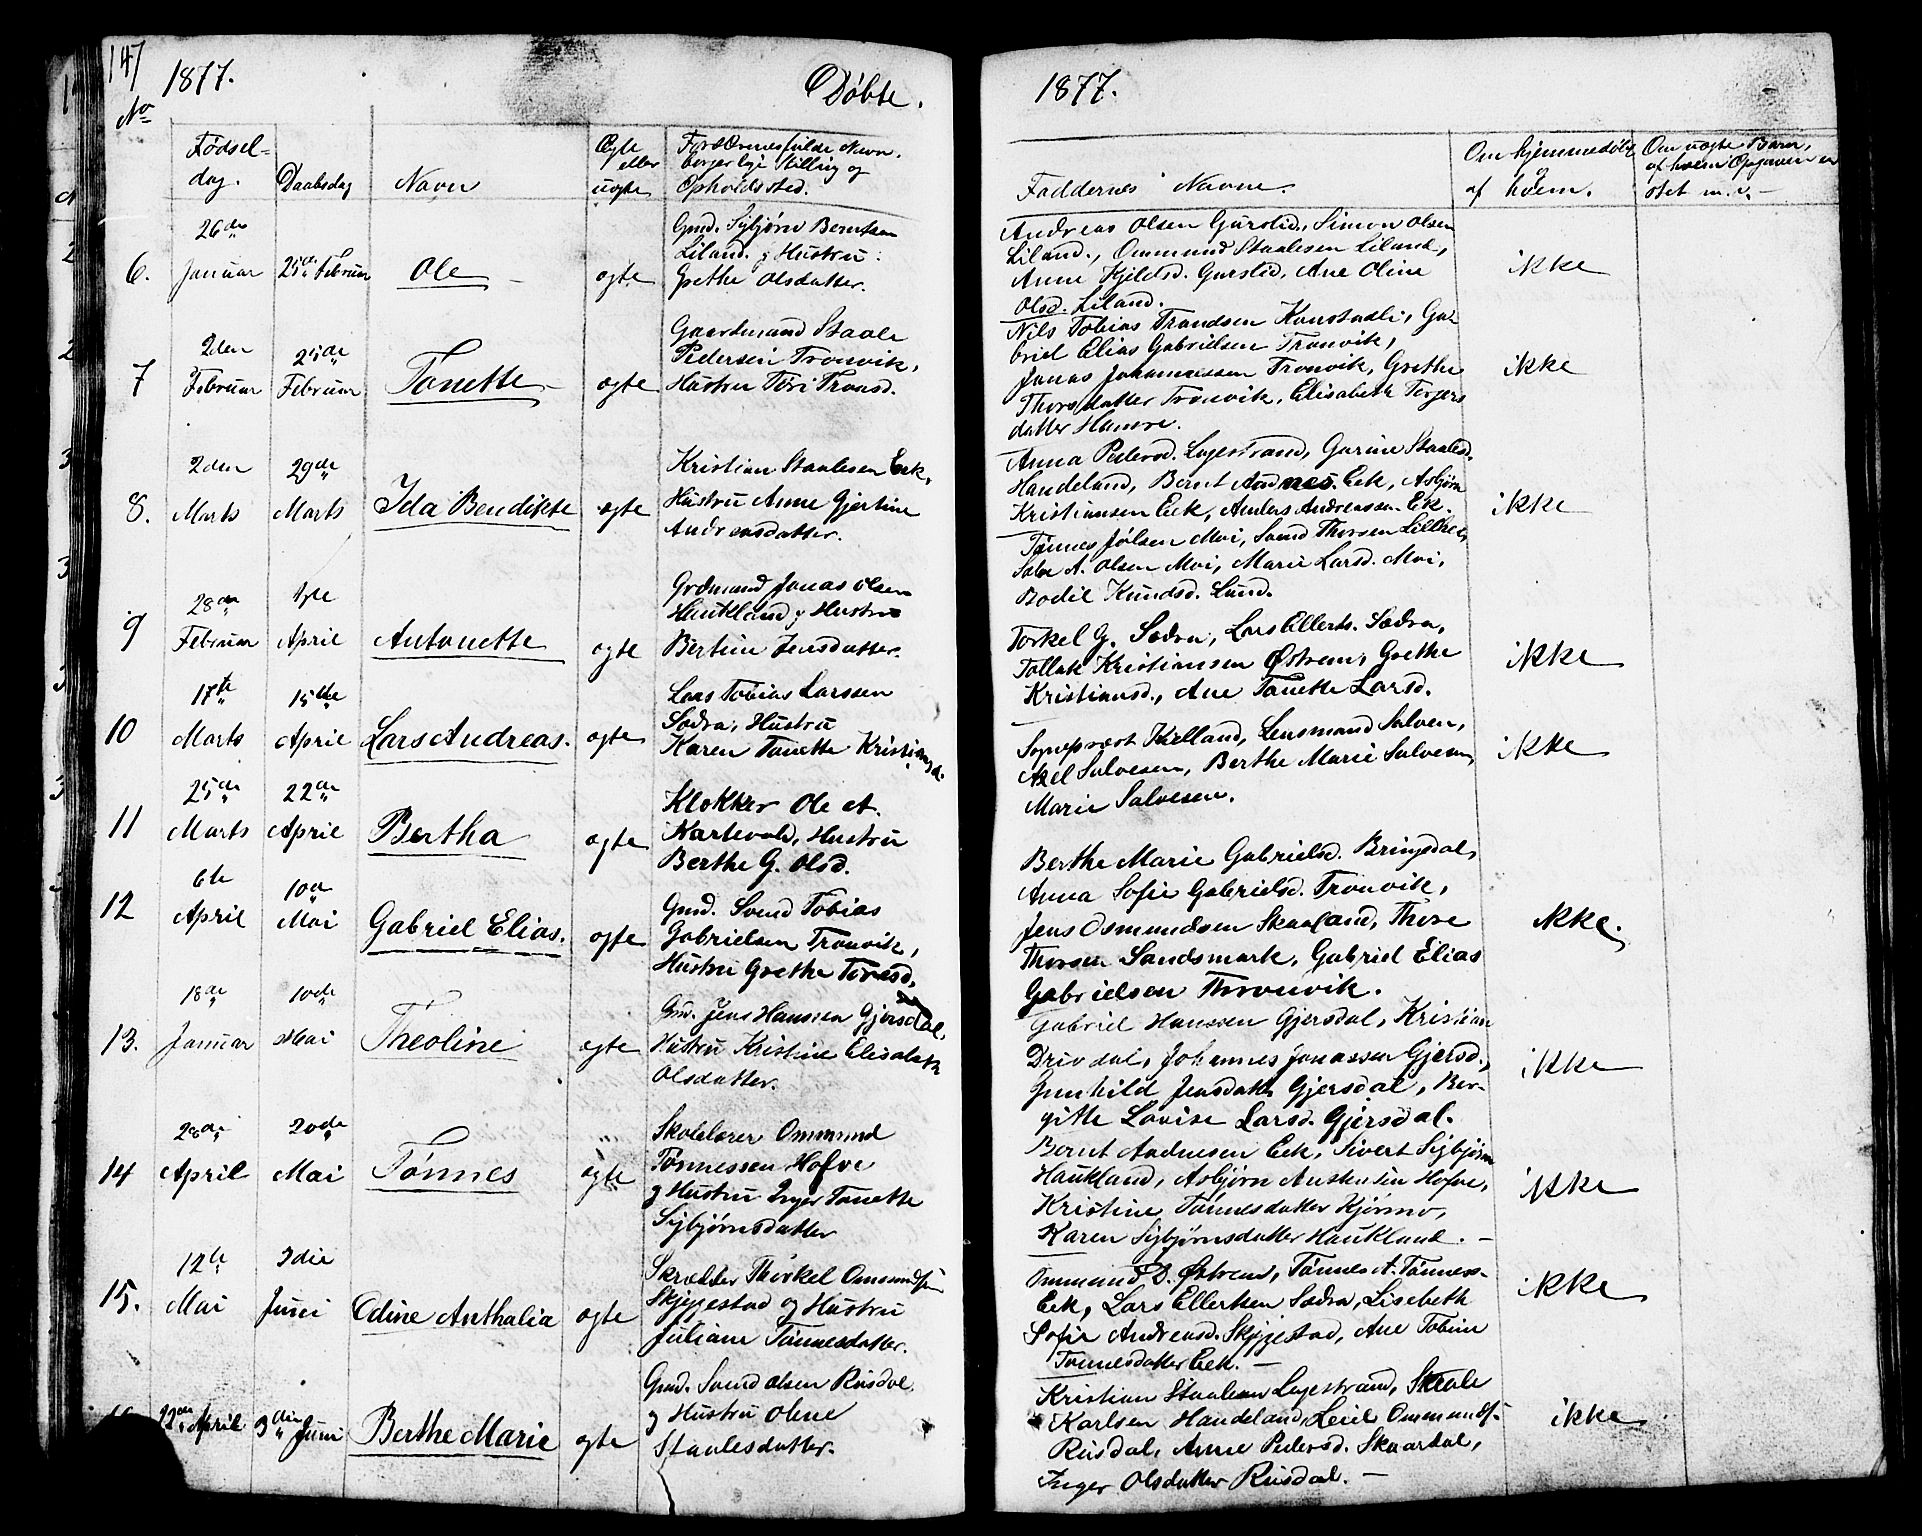 147
1877.
Døbte.
No
Fødsel-
dag.
Daabsdag
Navn
Ægte
eller
uægte
Forældrenes fulde Navn,
borgerlige Stilling og
Opholdssted.
26de
Gmd. Sigbjørn Berntsen
Liland. & Hustru:
6. Januar 25de Februar Ole ægte Grethe Olsdatter.
Gaardmand Staale
2den 25de Pedersen Tronvik,
7 Februar Februar Tonette ægte Hustru Tori Tronsd.
2den 29de Kristian Staalesen Eek,
8. Marts Marts Ida Bendikte ægte Hustru Anne Gjertine
Andreasdatter.
28de 1ste Grdmand Jonas Olsen
Haukland & Hustru
9 Februar April Antonette ægte Bertine Jensdatter.
17de 15de Lars Tobias Larssen
Sædra, Hustru
10 Marts April Lars Andreas. ægte Karen Tonette Kristiansd.
25de 22de Klokker Ole A.
11 Marts April Bertha ægte Kartevold, Hustru
Berthe G. Olsd.
6te 10de Gmd. Svend Tobias
12 April Mai Gabriel Elias. ægte Gabrielsen Tronvik,
Hustru Grethe Toresd.
18de 10de Gmd. Jens Hanssen Gjersdal,
13. Januar Mai Theoline ægte Hustru Kristine Elisabeth
Olsdatter.
28de 20de Skolelærer Ommund
14 April Mai Tønnes ægte Tønnessen Hofve
& Hustru Inger Tonette
Sigbjørnsdatter
12te 3die Skrædder Thorkel Ommundsen
15. Mai Juni Odine Anthalia ægte Skjeggestad og Hustru
Juliane Tønnesdatter.
Gmd. Svend Olsen Rusdal
22de April 3die Juni Berthe Marie ægte & Hustru Olene
Staalesdatter.
1877.
Faddernes Navne.
Om hjemmedøbt &
af hvem.
Om uægte Barn,
af hvem Opgaven er
sket m. v. -
Andreas Olsen Gurstid, Simon Olsen
Liland, Ommund Staalesen Liland,
Anne Kjeldsd. Gurstid, Ane Oline ikke
Olsd. Liland.
Nils Tobias Trondsen Konstadli, Ga-
briel Elias Gabrielsen Tronvik,
Jonas Johannessen Tronvik, Grethe ikke
Thorsdatter Tronvik, Elisabeth Torgers
datter Hamre.
Anna Pedersd. Lygestrand, Gurine Staalesd.
Handeland, Bernt Aadnes. Eek, Asbjørn
Kristiansen Eek, Anders Andreassen Eek. ikke
Tønnes Jølsen Moi, Svend Thorsen
A. Olsen Moi, Marie Larsd. Moi,
Bodil Knudsd. Lund.
Torkel G. Sædra, Lars Ellerts. Sædra,
Tollak Kristiansen Østrem, Grethe ikke
Kristiansd., Ane Tonette Larsd.
Sogneprest Kielland, Lensmand Salvesen,
Axel Salvesen, Berthe Marie Salvesen ikke
Marie Salvesen.
Berthe Marie Gabrielsd. Bringedal,
Anna Sofie Gabrielsd. Tronvik,
Jens Osmundsen Skaaland, Thore ikke.
Thorsen Sandsmark, Gabriel Elias
Gabrielsen Thronvik.
Gabriel Hanssen Gjersdal, Kristian
Drivdal, Johannes Jonassen Gjersd., ikke
Gunhild Jensdatt. Gjersdal, Ber-
gitte Lovise Larsd. Gjersdal.
Bernt Andresen Eek, Sivert Sigbjørns
Haukland, Asbjørn Austensen Hofve, ikke
Kristine Tønnesdatter Kjørmo,
Karen Sigbjørnsdatter Haukland. -
Ommund D. Østrem, Tønnes A. Tønness.
Eek, Lars Ellertsen Sædra, Lisebeth ikke
Sofie Andreasd. Skjeggestad, Ane Tobine
Tønnesdatter Eek. -
Kristian Staalesen Lygestrand, Staale
Karlsen Handeland, Leiel Ommunds. ikke
Rusdal, Anne Pedersd. Skaardal,
Inger Olsdatter Rusdal. -